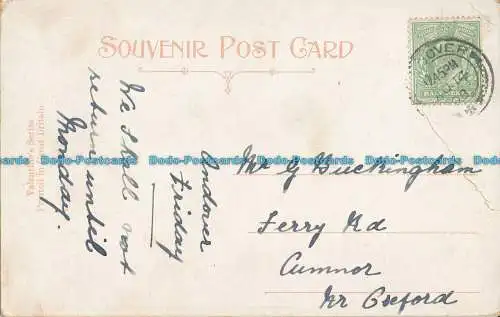 SOUVENIR POST CARD
Andover
Friday
We Shall not
return until
Monday.
Mr G Buckingham
Ferry Rd
Cumnor
Nr Oxford
Valentine's Series
Printed in Great Britain
HALFPENNY
Bodo-Postcards Bodo-Postcards Bodo-Postcards Bodo-Postcards Bodo-Postcards